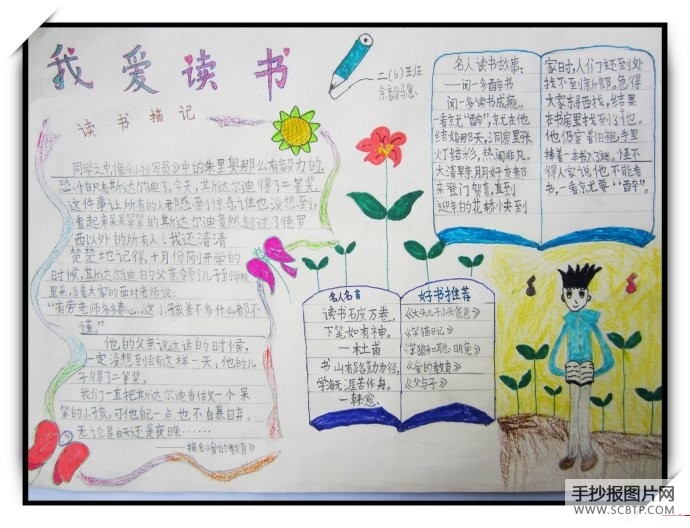 我爱读书
二(6)班
读书摘记
同学之中,像《小抄写员》中的朱里奥那么有毅力的,
恐怕只有斯达尔迪了。今天,斯达尔迪得了二等奖。
这件事让所有的人都感到惊奇,谁也没想到,
看起来呆呆笨笨的斯达尔迪竟然超过了德罗
西以外的所有人!我还清清
楚楚地记得,十月份刚开学的
时候,斯达尔迪的父亲领到学校
里来,当着大家的面对老师说:
“有劳老师多多费心,这小孩差不多什么都不
懂。”
他的父亲说这话的时候,
一定没想到会有这样一天:他的儿
子得了二等奖。
我们一直把斯达尔迪当估攵一个呆
笨的小孩,可他自己一点也不自暴自弃。
无论是白天还是夜晚……
——摘自《爱的教育》
名人读书故事:
——闻一多醉书
闻一多读书成瘾,
一看就“醉”,就在他
结婚那天,洞房里张
灯结彩,热闹非凡。
大清早亲朋好友都
来登门贺喜,直到
迎亲的花轿快到
家时,人们还到处
找不到新郎。急得
大家东寻西找,结果
在书房里找到了他。
他仍穿着旧袍,手里
捧着一本书入了迷。怪不
得人家说他不能看
书,一看就要“醉”。
名人名言
读书破万卷,
下笔如有神。
—杜甫
书山有路勤为径,
学海无涯苦作舟。
—韩愈
好书推荐
《大头儿子小头爸爸》
《笑猫日记》
《爱的教育》
《父与子》
手抄报图片网
WWW.SCBTP.COM